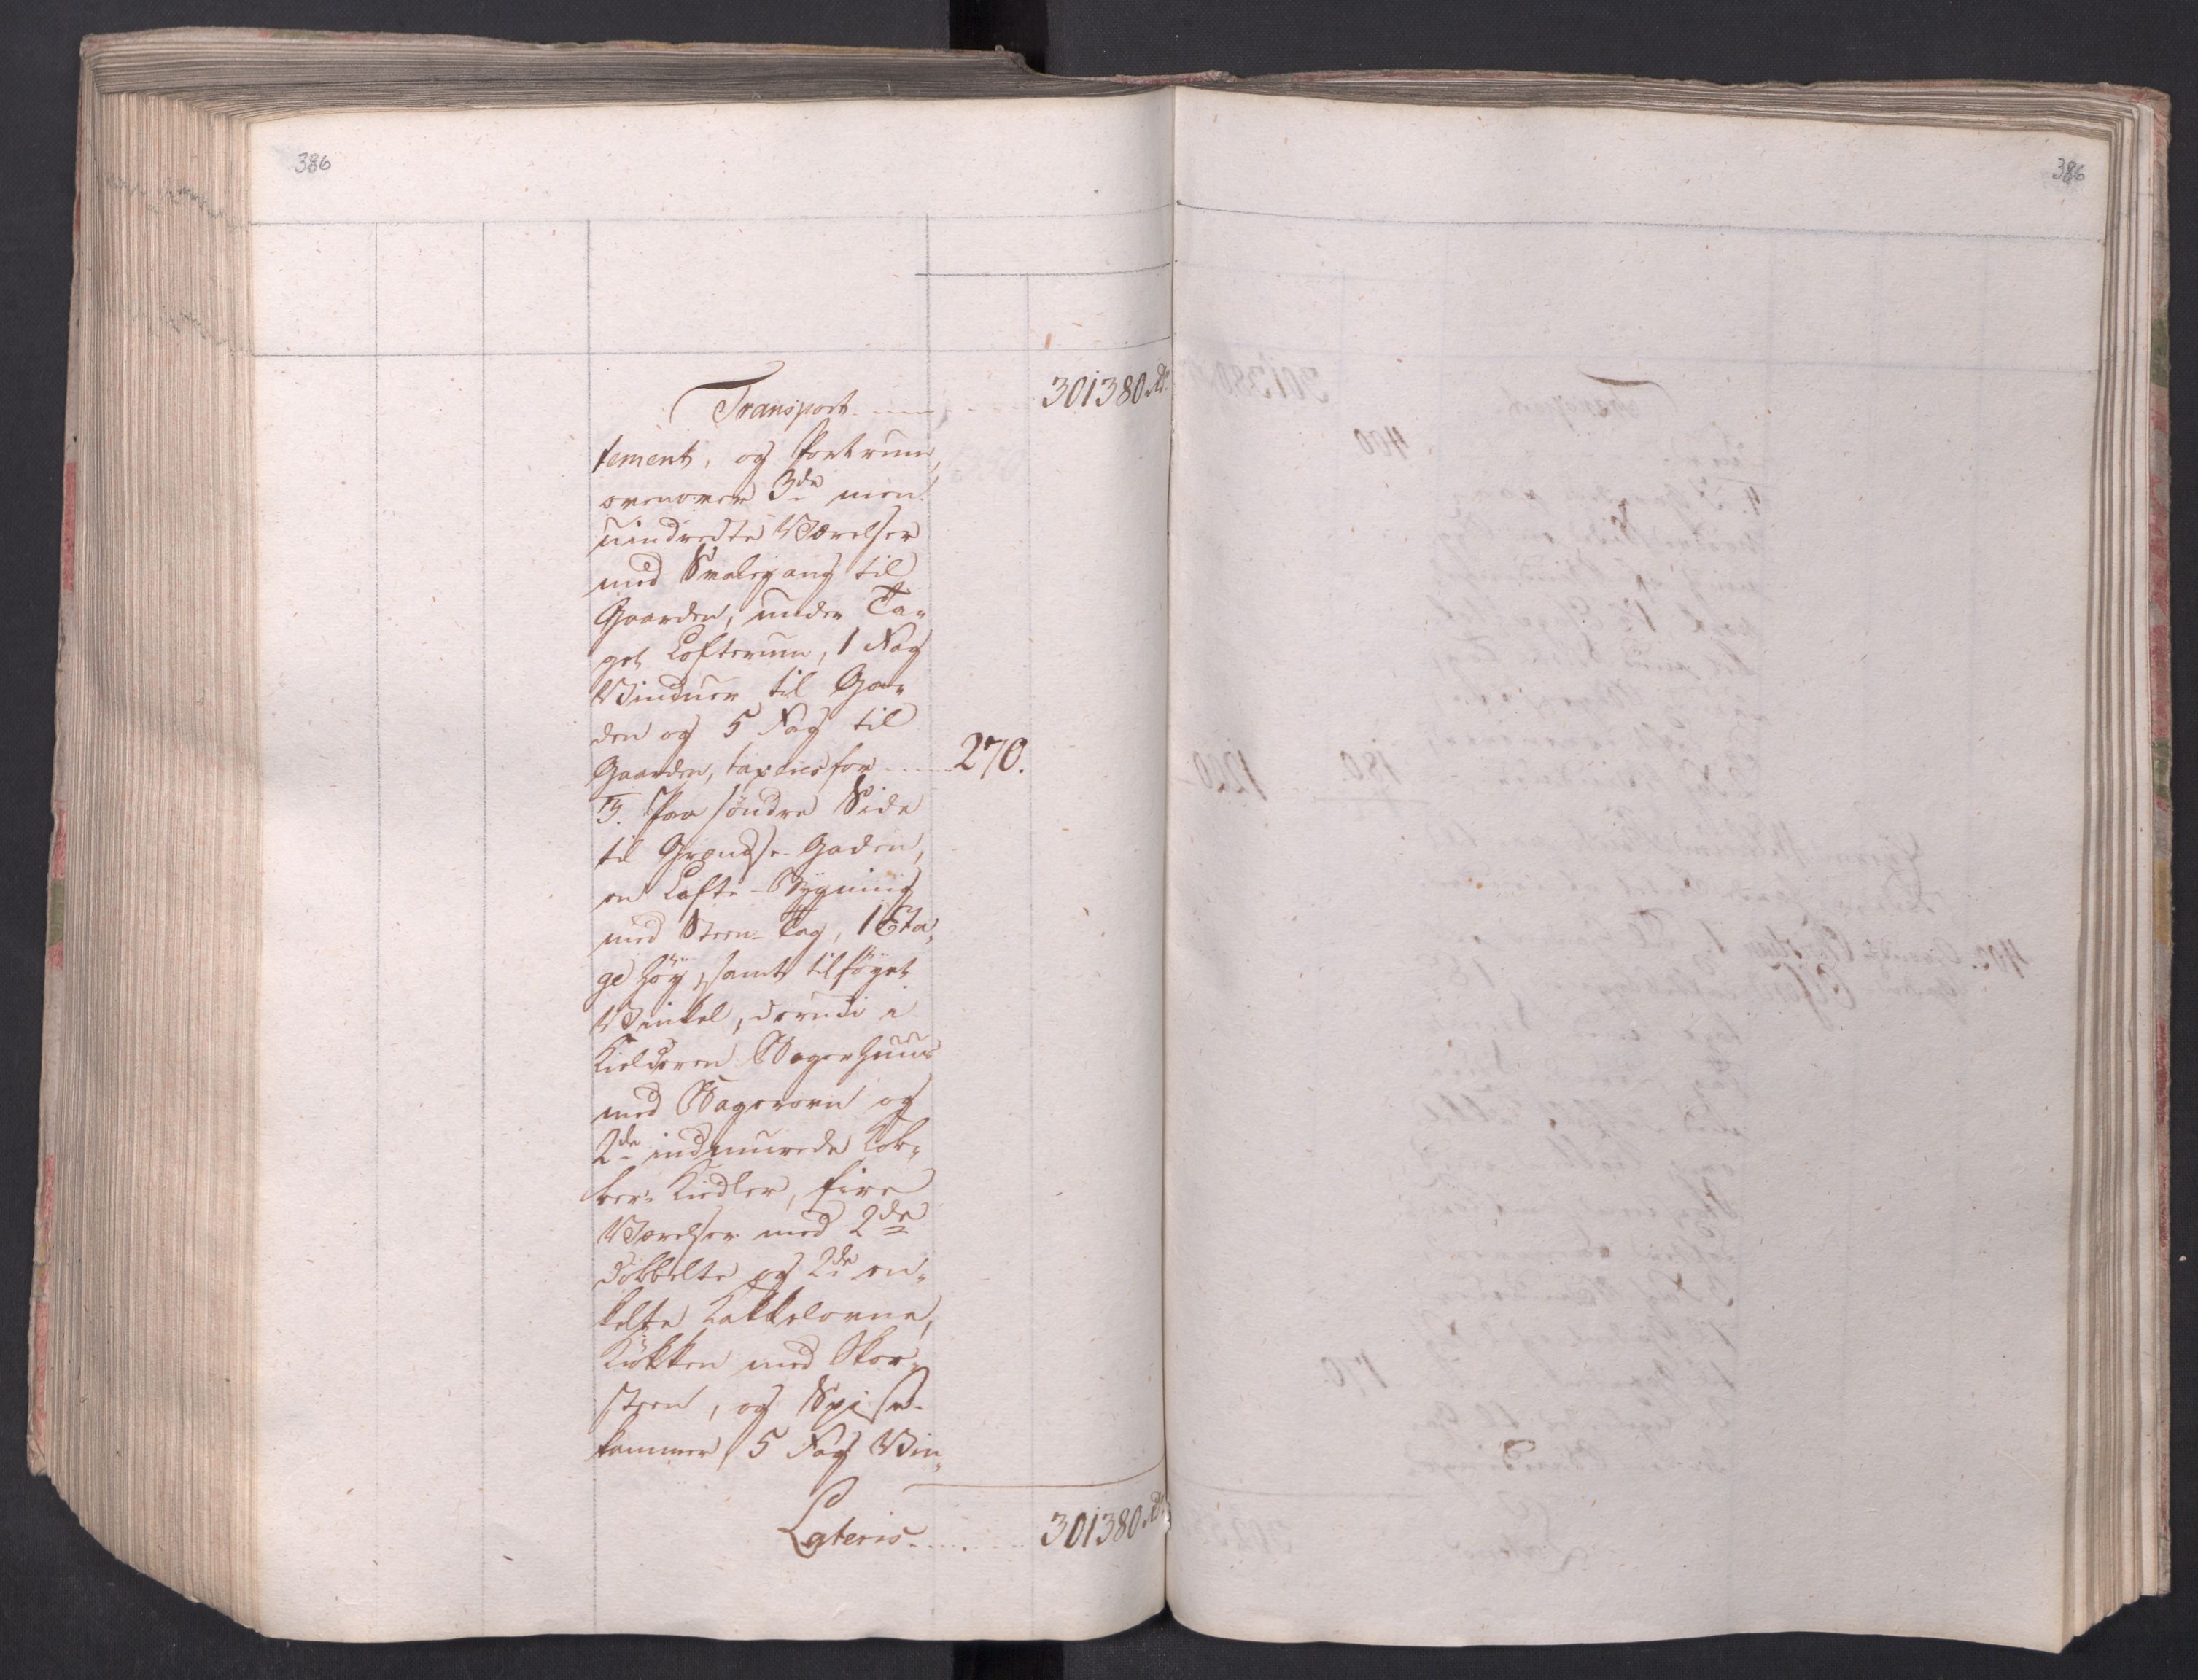 386
386
Transport 301380 Rd.
tement, og Portrum,
ovenover 3de men
uindredte Værelser
med Svalegang til
Gaarden, under Ta-
get Lofterum, 1 Fag
Vinduer til Ga-
den og 5 Fag til
Gaarden, taxeres for 270.
3. Paa søndre Side
til Grændse-Gaden,
en Lafte-Bygning
med Steen-Tag, 1 Eta-
ge høy, samt tilføyet
Vinkel, derudi i
Kielderen Bagerhuus
med Bagerovn og
2de indmurede Kok-
ker-Kiedler, fire
Værelser med 2de
dobbelte og 2de en-
kelte Kakkelovne,
Kiøkken med Skor-
steen, og Spise-
kammer, 5 Fag Vin-
Lateris 301380 Rd.